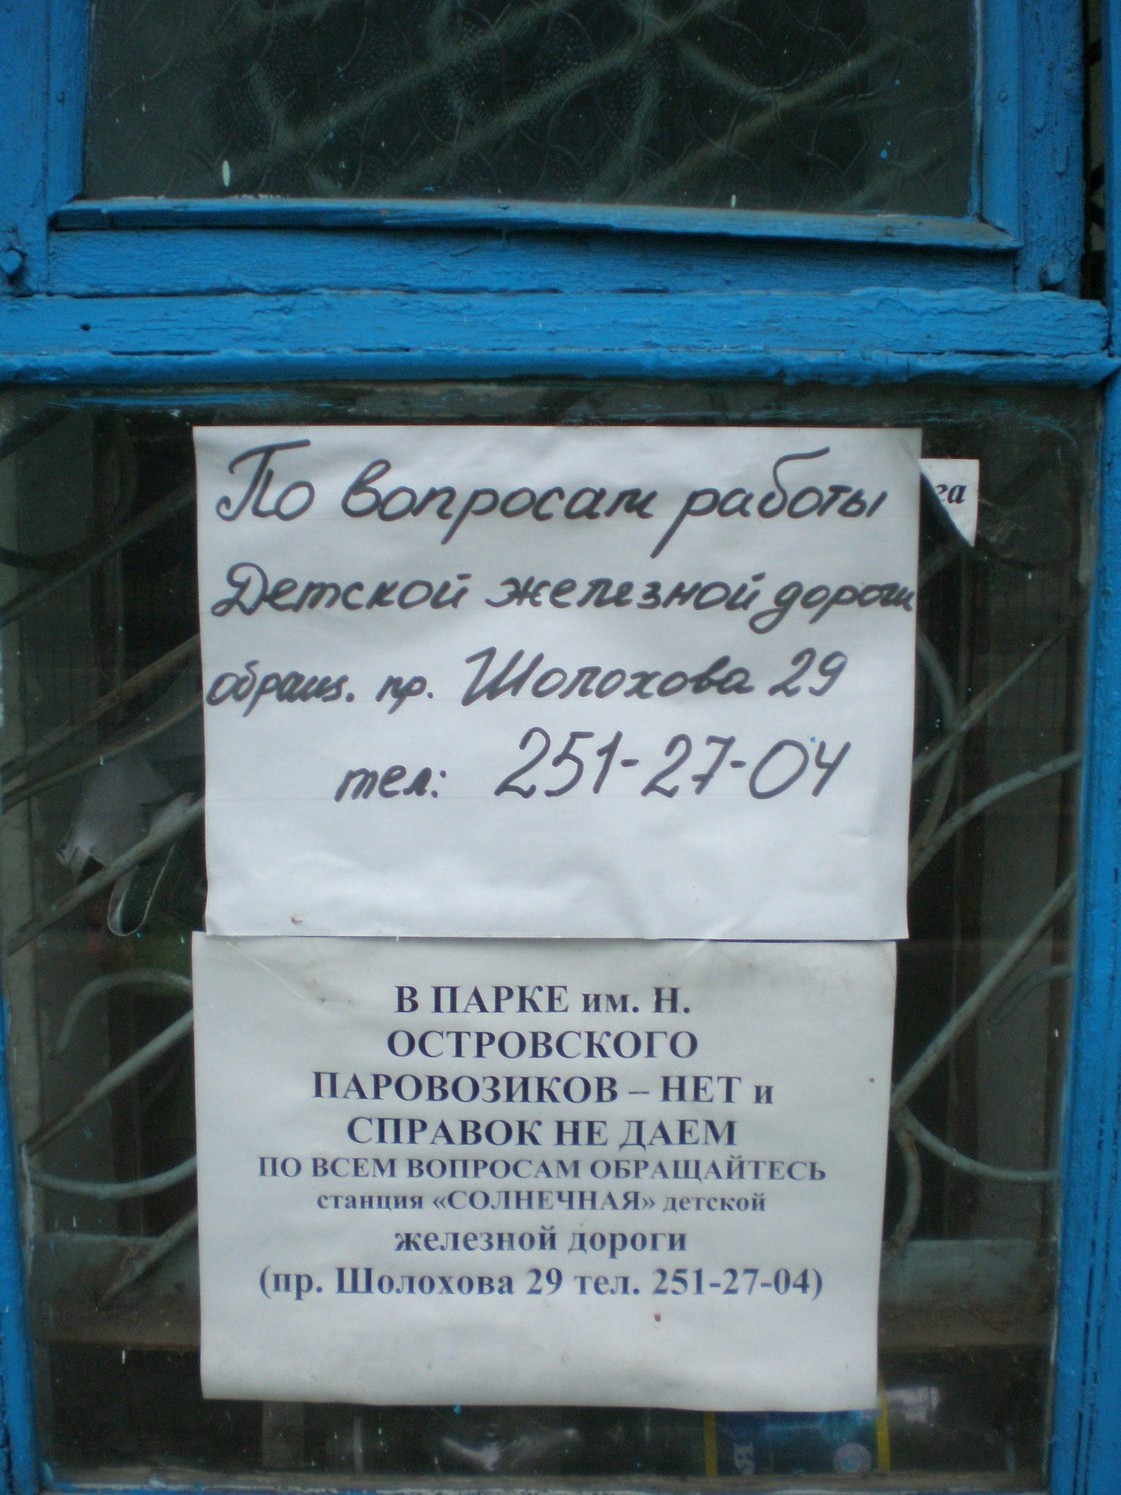 По вопросам работы
Детской железной дороги
обращ. пр. Шолохова 29
тел: 251-27-04
га
В ПАРКЕ им. Н.
ОСТРОВСКОГО
ПАРОВОЗИКОВ – НЕТ и
СПРАВОК НЕ ДАЕМ
ПО ВСЕМ ВОПРОСАМ ОБРАЩАЙТЕСЬ
станция «СОЛНЕЧНАЯ» детской
железной дороги
(пр. Шолохова 29 тел. 251-27-04)